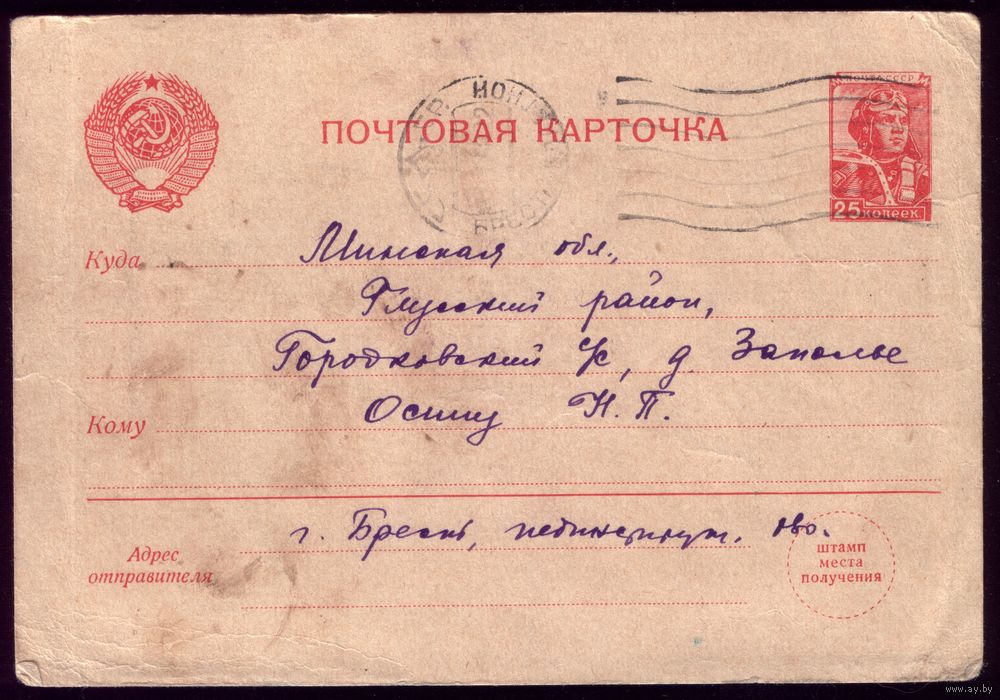 ПОЧТА СССР
ПОЧТОВАЯ КАРТОЧКА
25 КОПЕЕК
Куда Минская обл.,
Глусский район,
Городковский с/с, д. Заполье
Кому Осипу Н. П.
Адрес отправителя г. Брест, пединститут.
штамп
места
получения
www.ay.by